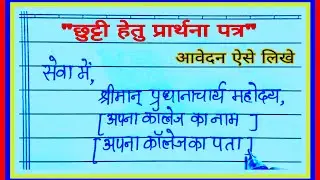 "छुट्टी हेतु प्रार्थना पत्र"
आवेदन ऐसे लिखे
सेवा में,
श्रीमान् प्रधानाचार्य महोदय,
[अपना कालेज का नाम ]
[अपना कॉलेज का पता ]